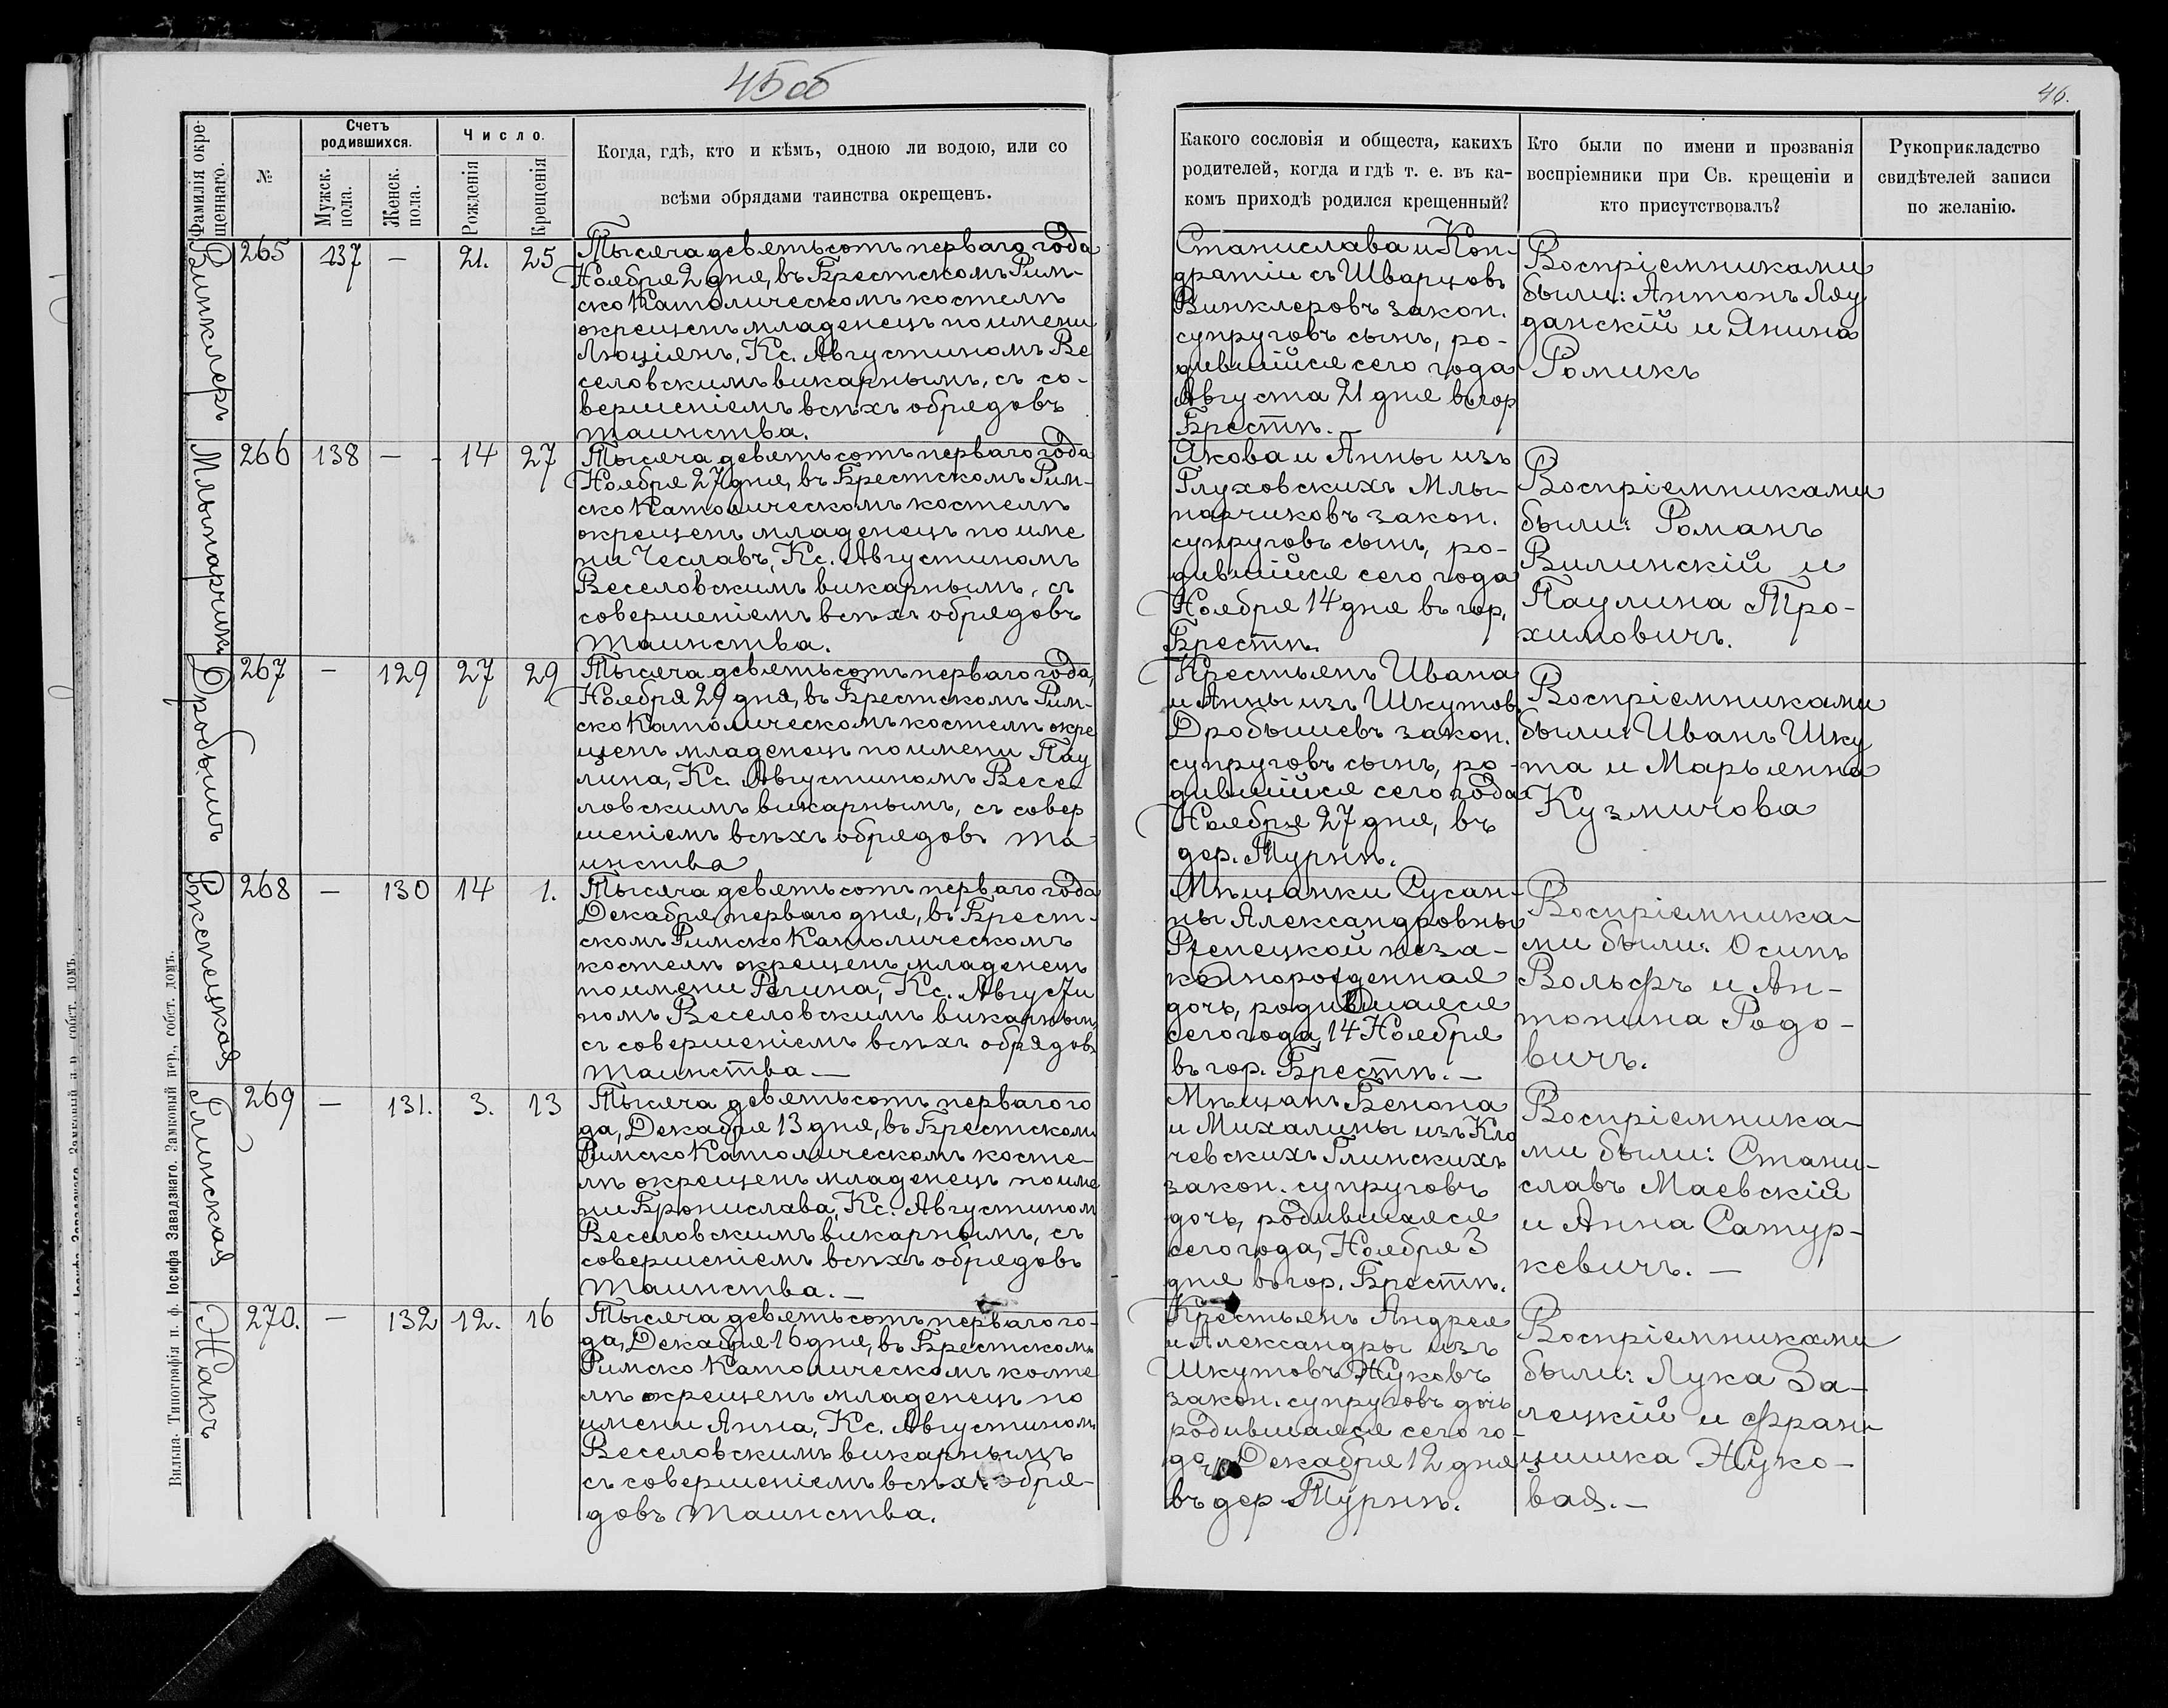 45об
46.
Фамилія окрещеннаго.
№
Счетъ родившихся.
Мужск. пола.
Женск. пола.
Число.
Рожденія
Крещенія
Когда, гдѣ, кто и кѣмъ, одною ли водою, или со
всѣми обрядами таинства окрещенъ.
Какого сословія и общеста, какихъ
родителей, когда и гдѣ т. е. въ ка-
комъ приходѣ родился крещенный?
Кто были по имени и прозванія
воспріемники при Св. крещеніи и
кто присутствовалъ?
Рукоприкладство
свидѣтелей записи
по желанію.
Винклеръ
265
137
—
21.
25
Тысяча девятьсотъ перваго года
Ноября 2 дня, въ Брестскомъ Рим-
ско Католическомъ костелѣ
окрещенъ младенецъ по имени
Люціянъ, Кс. Августиномъ Ве
селовскимъ викарнымъ, съ со-
вершеніемъ всѣхъ обрядовъ
таинства.
Станислава и Кон-
дратіи съ Шварцовъ
Винклеровъ закон.
супруговъ сынъ, ро-
дившійся сего года
Августа 21 дня въ гор
Брестѣ. —
Воспріемниками
были: Антонъ Ляу
данскій и Янина
Ромикъ
Млынарчикъ
266
138
—
14
27
Тысяча девятьсотъ перваго года
Ноября 27 дня, въ Брестскомъ Рим-
ско Католическомъ костелѣ
окрещенъ младенецъ по име
ни Чеславъ, Кс. Августиномъ
Веселовскимъ викарнымъ, съ
совершеніемъ всѣхъ обрядовъ
таинства.
Якова и Анны изъ
Глуховскихъ Млы-
нарчиковъ закон.
супруговъ сынъ, ро-
дившійся сего года
Ноября 14 дня въ гор.
Брестѣ.
Воспріемниками
были: Романъ
Вилинскій и
Паулина Тро-
химовичъ.
Дробышъ
267
—
129
27
29
Тысяча девятьсотъ перваго года,
Ноября 29 дня, въ Брестскомъ Рим-
ско Католическомъ костелѣ окре
щенъ младенецъ по имени Пау
лина, Кс. Августиномъ Весе
ловскимъ викарнымъ, съ совер
шеніемъ всѣхъ обрядовъ та-
инства
Крестьянъ Ивана
и Анны изъ Шкутов.
Дробышевъ закон.
супруговъ сынъ, ро-
дившійся сего года
Ноября 27 дня, въ
дер. Турнѣ.
Воспріемниками
были: Иванъ Шку
та и Марьянна
Кузмичова
Ржепецкая
268
—
130
14
1.
Тысяча девятьсотъ перваго года
Декабря перваго дня, въ Брест-
скомъ Римско Католическомъ
костелѣ окрещенъ младенецъ
по имени Регина, Кс. Августи
номъ Веселовскимъ викарным,
съ совершеніемъ всѣхъ обрядовъ
таинства —
Мѣщанки Сусан-
ны Александровны
Репецкой неза-
коннорожденная
дочь, родившаяся
сего года 14 Ноября
въ гор. Брестѣ. —
Воспріемника-
ми были: Осипъ
Вольфъ и Ан-
тонина Родо-
вичъ.
Глинская
269
—
131.
3.
13
Тысяча девятьсотъ перваго го
да, Декабря 13 дня, въ Брестскомъ
Римско Католическомъ косте-
лѣ окрещенъ младенецъ по име
ни Бронислава, Кс. Августином
Веселовскимъ викарнымъ, съ
совершеніемъ всѣхъ обрядовъ
таинства. —
Мѣщанъ Зенона
и Михалины изъ Кло
чевскихъ Глинскихъ
закон. супруговъ
дочь, родившаяся
сего года, Ноября 3
дня въ гор. Брестѣ.
Воспріемника-
ми были: Стани-
славъ Маевскій
и Анна Сатур-
кевичъ. —
Жакъ
270.
—
132
12.
16
Тысяча девятьсотъ перваго го-
да, Декабря 16 дня, въ Брестскомъ
Римско Католическомъ косте
лѣ окрещенъ младенецъ по
имени Анна, Кс. Августиномъ
Веселовскимъ викарнымъ
съ совершеніемъ всѣхъ обря-
довъ таинства.
Крестьянъ Андрея
и Александры изъ
Шкутовъ Жуковъ
закон. супруговъ дочь
родившаяся сего го-
да, Декабря 12 дня
въ дер Турнѣ.
Воспріемниками
были: Лука За-
лецкій и Фран-
цишка Жуко-
вая. —
Вильна. Типографія п. ф. Іосифа Завадзкаго. Замковый пер., собст. домъ.